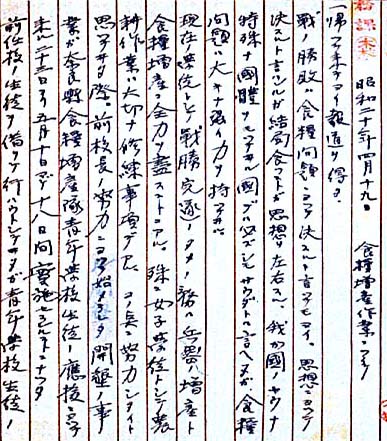 昭和二十年四月十九日　食糧増産作業ニツイテ
一帰ッテ来テヨイ報道ヲ得タ。
戦ノ勝敗ハ食糧問題ニヨッテ決スルト言ッテモヨイ。思想ニヨッテ
決スルト言フガ結局食フコトガ思想ヲ左右スル。我ガ國ノヤウナ
特殊ナ國體ヲモッテヰル國デハ必ズシモサウダトハ言ヘヌガ、食糧
問題ハ大キナ強イ力ヲ持ッテヰル
現在ノ学徒トシテ戦勝完遂ノタメノ務ハ兵器ノ増産ト
食糧増産ニ全力ヲ盡スコトデアル。殊ニ女子学徒トシテ農
耕作業ハ大切ナ修練事項デアル。コノ長ニ努力シタイト
思ッテヰタ際、前校長ノ努力ニヨッテ始メラレタ開墾ノ事
業ガ奈良縣食糧増産隊青年学校生徒ノ應援ニヨッテ
来ル二十三日ヨリ五月十日マデ十八日間実施セラルルコトニナッタ
前任校ノ生徒ヲ借リテ行ハウトシテヰタガ青年学校生徒ノ